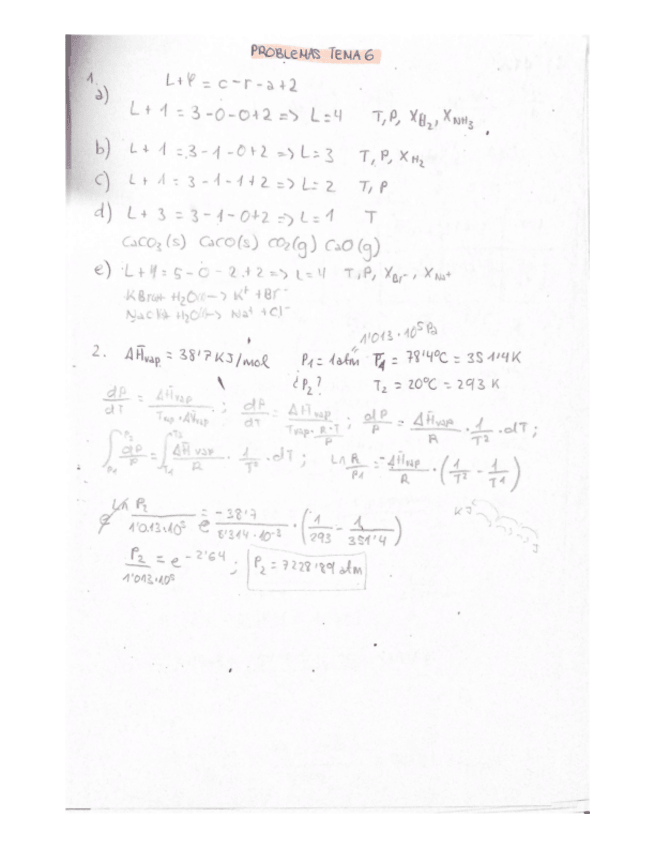 PROBLEMAS TEMA 6
1.
L+φ = c-r-a+2
a) L+1 = 3-0-0+2 => L=4 T, P, XH2, XNH3
b) L+1 = 3-1-0+2 => L=3 T, P, XH2
c) L+1 = 3-1-1+2 => L=2 T, P
d) L+3 = 3-1-0+2 => L=1 T
CaCO3(s) CaCO(s) CO2(g) CaO(g)
e) L+1 = 5-0-2+2 => L=4 T, P, XBr-, XNa+
KBr + H2O --> K+ + Br-
NaCl + H2O --> Na+ + Cl-
1'013·10^5 Pa
2. ΔHvap = 38'7 KJ/mol P1 = 1 atm T1 = 78'4ºC = 351'4 K
¿P2? T2 = 20ºC = 293 K
dP/dT = ΔHvap/(Tvap·ΔVvap) ; dP/dT = ΔHvap/(Tvap·R·T/P) ; dP/P = ΔHvap/R · 1/T² · dT ;
∫P1 P2 dP/P = ∫T1 T2 ΔHvap/R · 1/T² · dT ; Ln P2/P1 = -ΔHvap/R · (1/T2 - 1/T1)
Ln P2/1'013·10^5 = -38'7/8'314·10^-3 · (1/293 - 1/351'4)
P2/1'013·10^5 = e^-2'64 ; P2 = 7228'89 atm